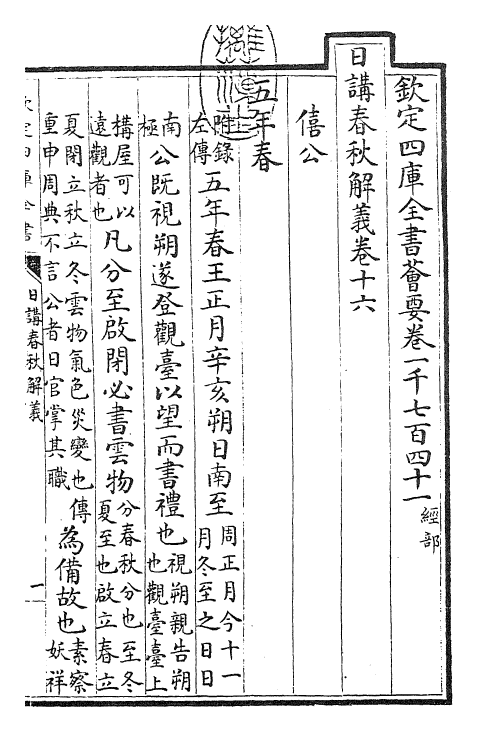 欽定四庫全書薈要卷一千七百四十一 經部
日講春秋解義卷十六
僖公
五年春
附錄左傳五年春王正月辛亥朔日南至周正月今十一月冬至之日日
南極公既視朔遂登觀臺以望而書禮也視朔親告朔也觀臺臺上
構屋可以遠觀者也凡分至啟閉必書雲物分春秋分也至冬夏至也啟立春立
夏閉立秋立冬雲物氣色災變也傳重申周典不言公者日官掌其職為備故也素察妖祥
日講春秋解義
一